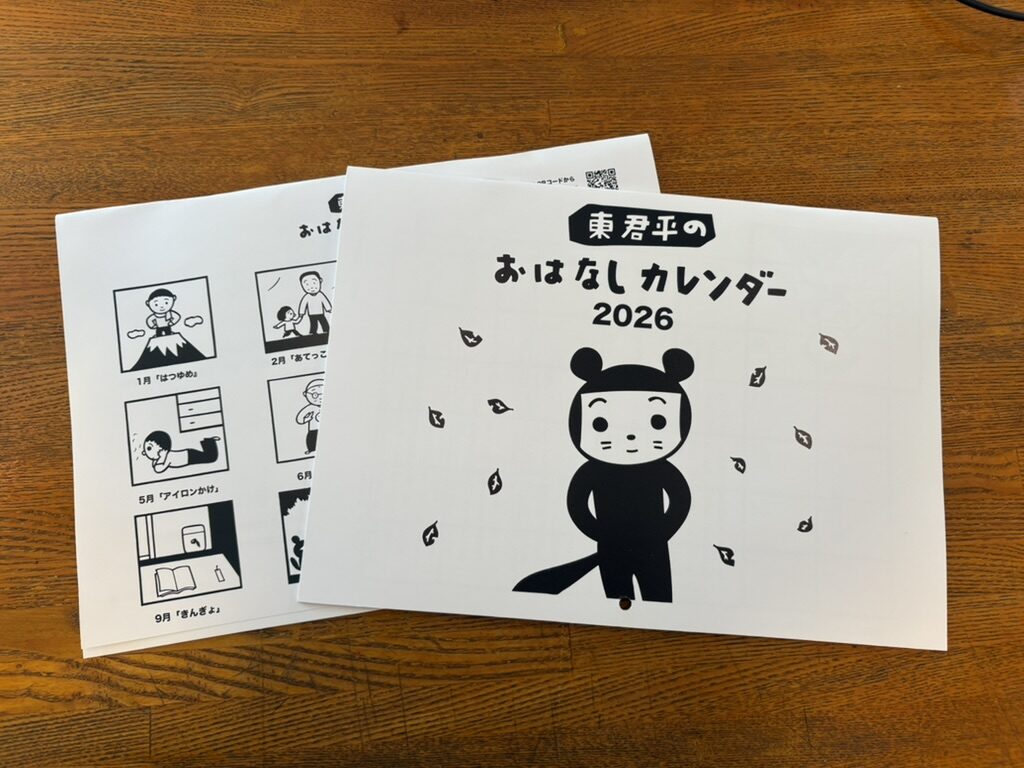 東君平の
おはなしカレンダー
2026
コードから
おは
1月「はつゆめ」
2月「あてっこ
5月「アイロンかけ」
6月
9月「きんぎょ」